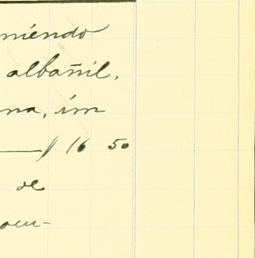 miendo
albañil,
na, im
$ 16 50
de